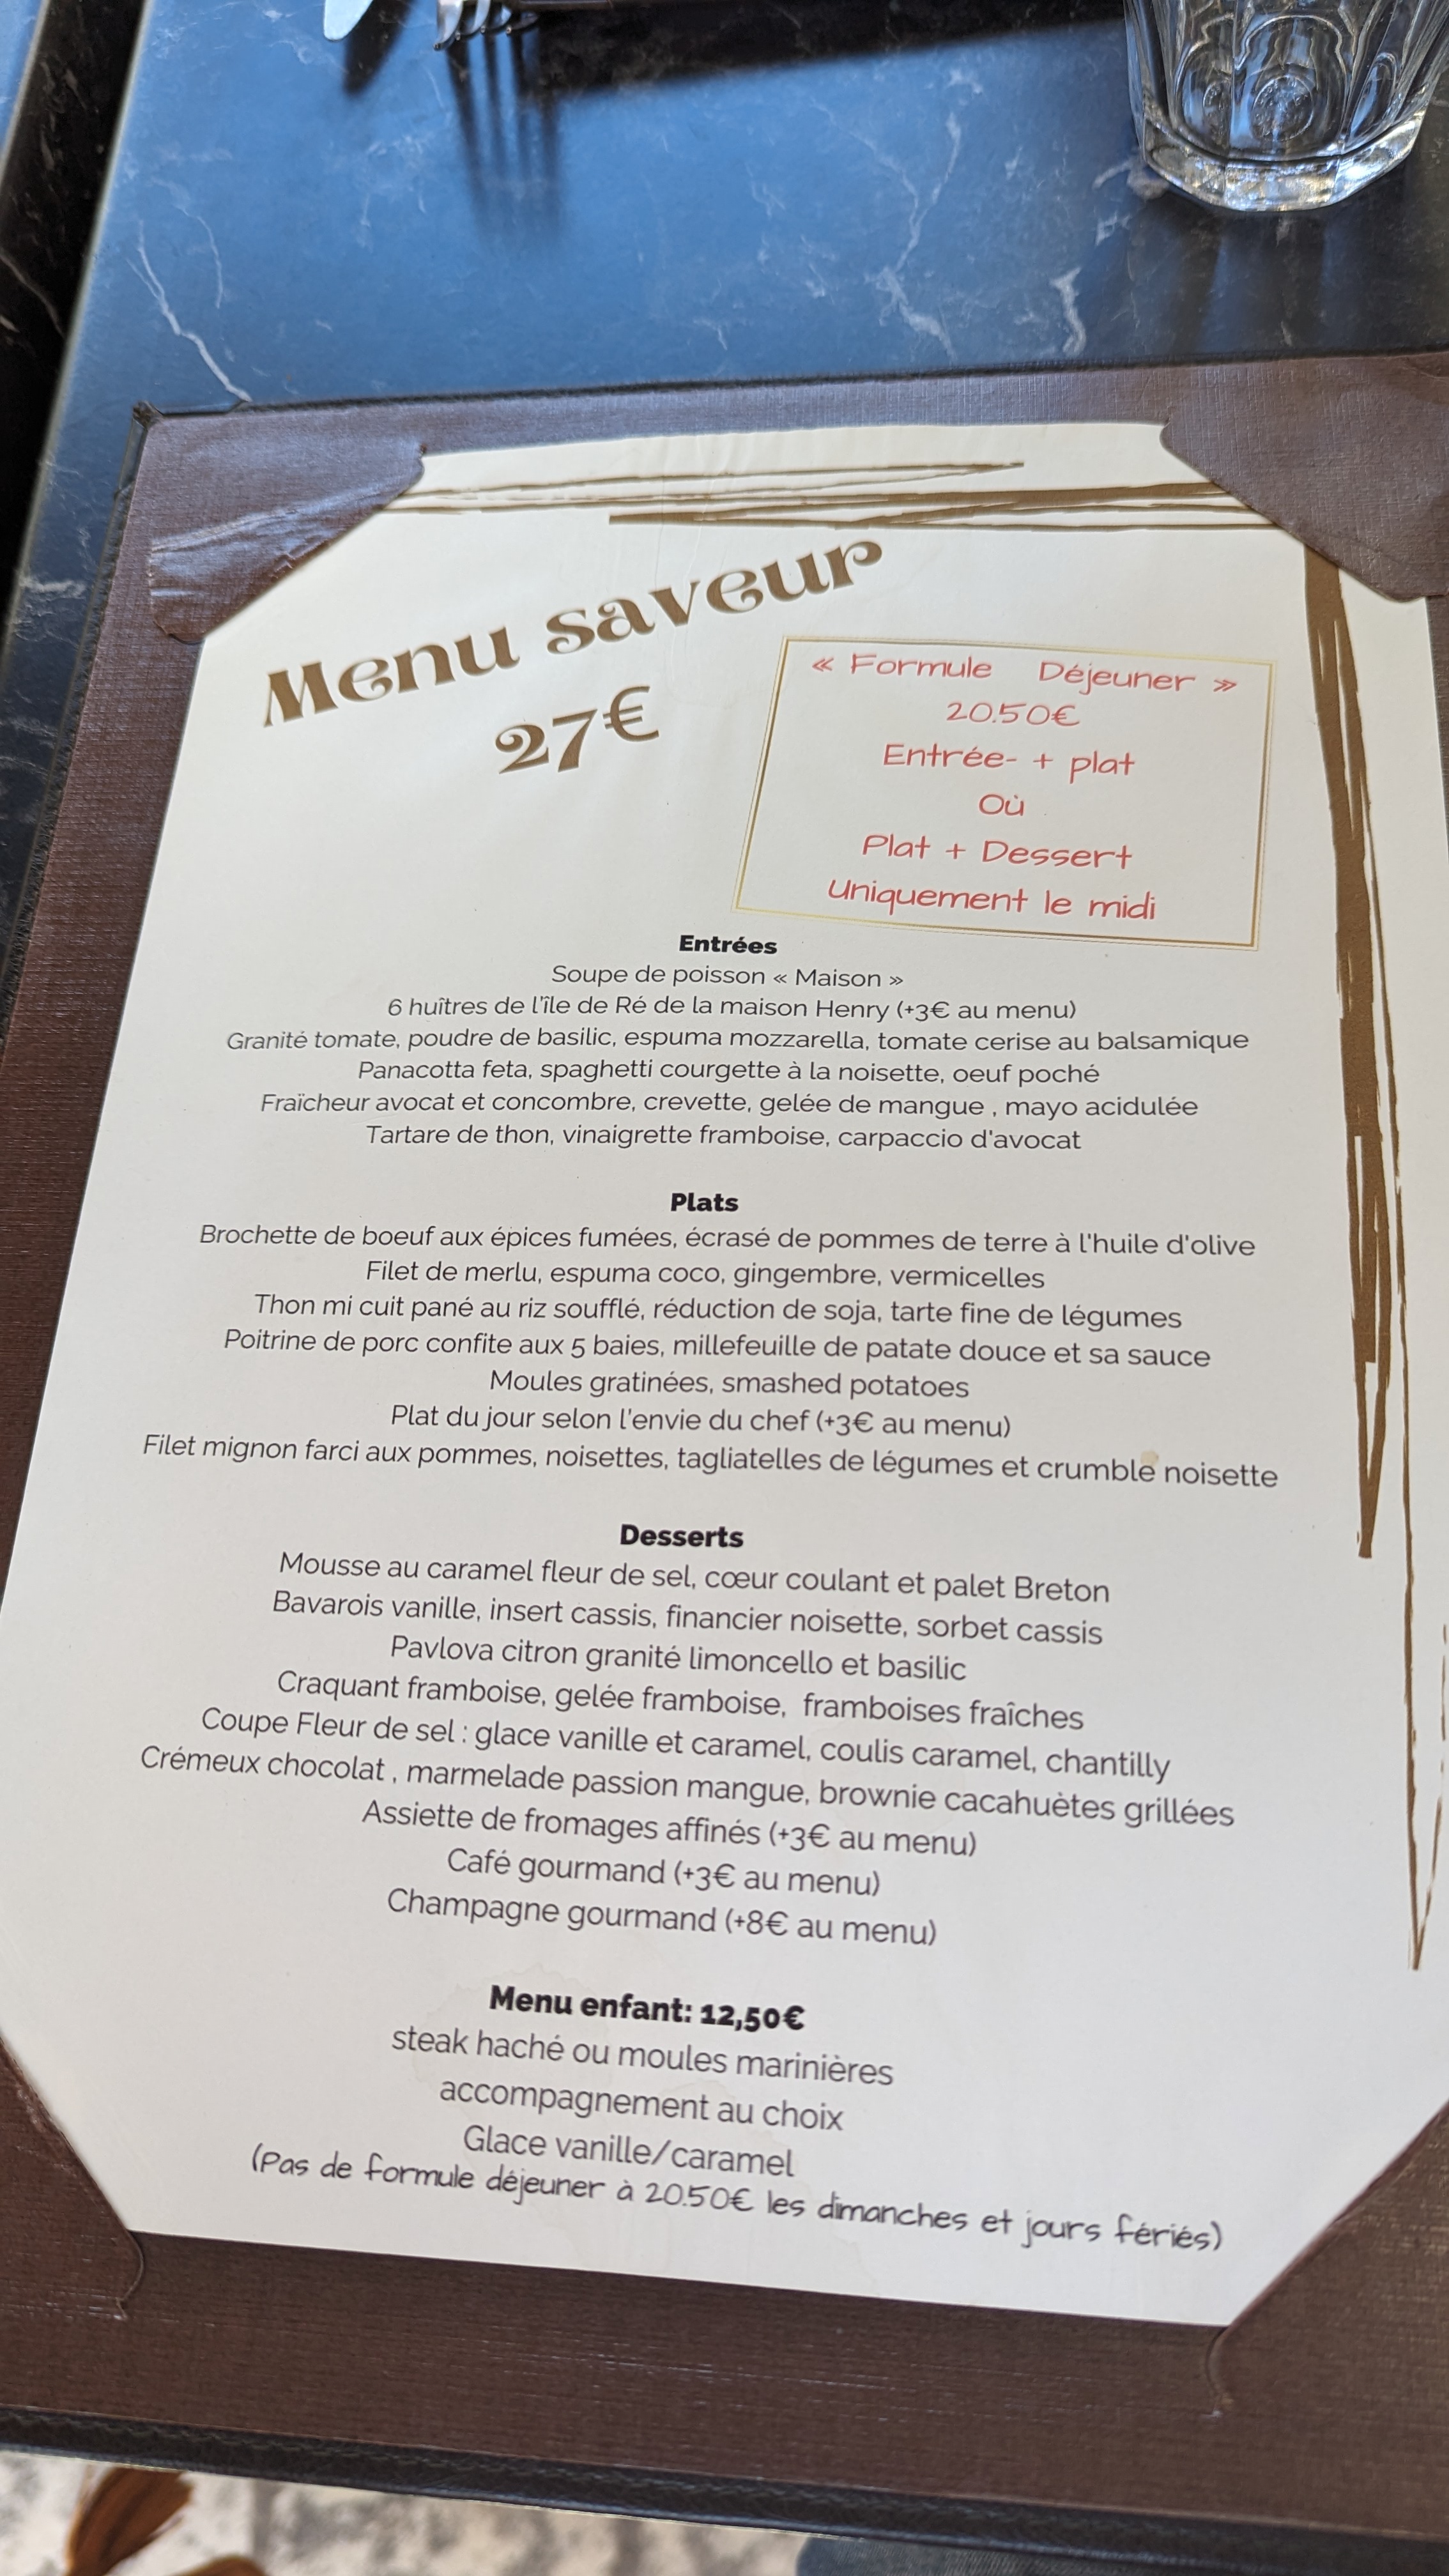 Menu saveur
27€
« Formule Déjeuner »
20.50€
Entrée- + plat
Où
Plat + Dessert
Uniquement le midi
Entrées
Soupe de poisson « Maison »
6 huîtres de l'île de Ré de la maison Henry (+3€ au menu)
Granité tomate, poudre de basilic, espuma mozzarella, tomate cerise au balsamique
Panacotta feta, spaghetti courgette à la noisette, oeuf poché
Fraïcheur avocat et concombre, crevette, gelée de mangue , mayo acidulée
Tartare de thon, vinaigrette framboise, carpaccio d'avocat
Plats
Brochette de boeuf aux épices fumées, écrasé de pommes de terre à l'huile d'olive
Filet de merlu, espuma coco, gingembre, vermicelles
Thon mi cuit pané au riz soufflé, réduction de soja, tarte fine de légumes
Poitrine de porc confite aux 5 baies, millefeuille de patate douce et sa sauce
Moules gratinées, smashed potatoes
Plat du jour selon l'envie du chef (+3€ au menu)
Filet mignon farci aux pommes, noisettes, tagliatelles de légumes et crumble noisette
Desserts
Mousse au caramel fleur de sel, cœur coulant et palet Breton
Bavarois vanille, insert cassis, financier noisette, sorbet cassis
Pavlova citron granité limoncello et basilic
Craquant framboise, gelée framboise, framboises fraîches
Coupe Fleur de sel : glace vanille et caramel, coulis caramel, chantilly
Crémeux chocolat , marmelade passion mangue, brownie cacahuètes grillées
Assiette de fromages affinés (+3€ au menu)
Café gourmand (+3€ au menu)
Champagne gourmand (+8€ au menu)
Menu enfant: 12,50€
steak haché ou moules marinières
accompagnement au choix
Glace vanille/caramel
(Pas de formule déjeuner à 20.50€ les dimanches et jours fériés)